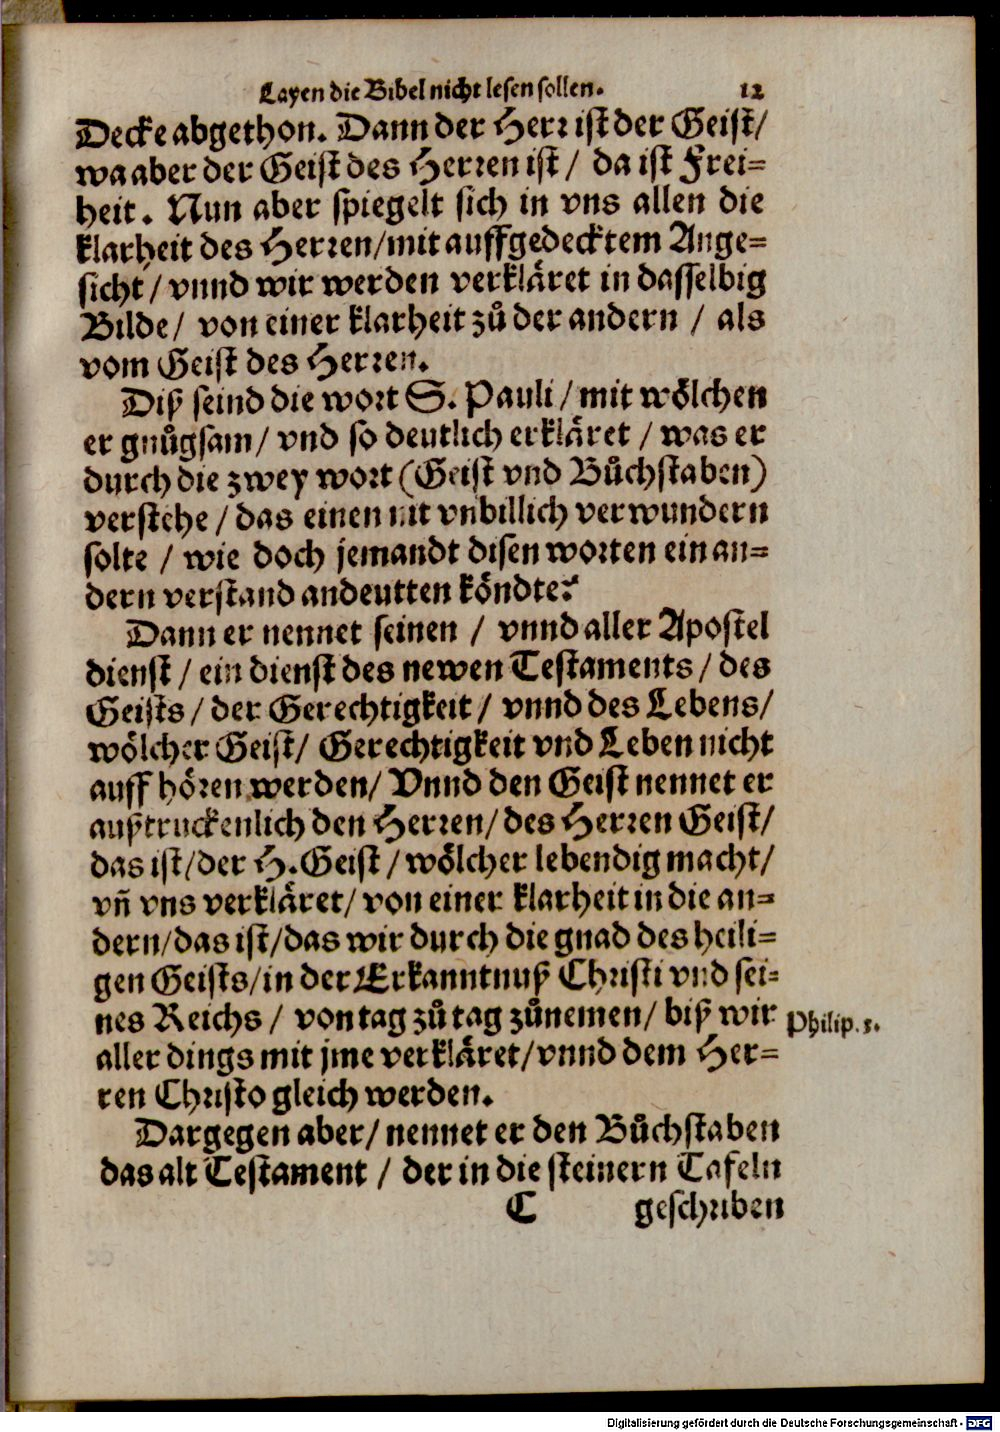 Layen die Bibel nicht lesen sollen. 12
Decke abgethon. Dann der Herr ist der Geist/
wa aber der Geist des Herren ist / da ist Frei=
heit. Nun aber spiegelt sich in vns allen die
klarheit des Herren/mit auffgedecktem Ange=
sicht/ vnnd wir werden verkläret in dasselbig
Bilde/ von einer klarheit zů der andern / als
vom Geist des Herren.
Diß seind die wort S. Pauli / mit wölchen
er gnůgsam/ vnd so deutlich erkläret / was er
durch die zwey wort (Geist vnd Bůchstaben)
verstehe / das einen nit vnbillich verwundern
solte / wie doch jemandt disen worten ein an=
dern verstand andeutten köndte?
Dann er nennet seinen / vnnd aller Apostel
dienst / ein dienst des newen Testaments / des
Geists / der Gerechtigkeit / vnnd des Lebens/
wölcher Geist/ Gerechtigkeit vnd Leben nicht
auff hören werden/ Vnnd den Geist nennet er
außtruckenlich den Herren/ des Herren Geist/
das ist/der H. Geist / wölcher lebendig macht/
vñ vns verkläret/ von einer klarheit in die an=
dern/das ist/das wir durch die gnad des heili=
gen Geists/in der Erkanntnuß Christi vnd sei=
nes Reichs / von tag zů tag zůnemen/ biß wir
Philip. 3.
aller dings mit jme verkläret/vnnd dem Her=
ren Christo gleich werden.
Dargegen aber/ nennet er den Bůchstaben
das alt Testament / der in die steinern Tafeln
C geschriben
Digitalisierung gefördert durch die Deutsche Forschungsgemeinschaft - DFG